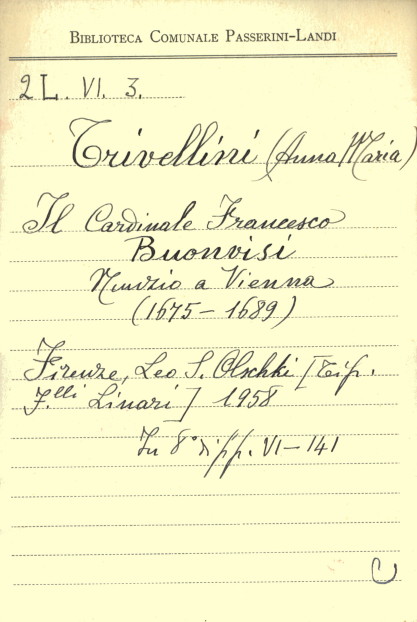 BIBLIOTECA COMUNALE PASSERINI-LANDI
2L. VI. 3.
Trivellini (Anna Maria)
Il Cardinale Francesco
Buonvisi
Nunzio a Vienna
(1675-1689)
Firenze, Leo S. Olschki [Tip.
F.lli Linari] 1958
In 8° di pp. VI-141
C